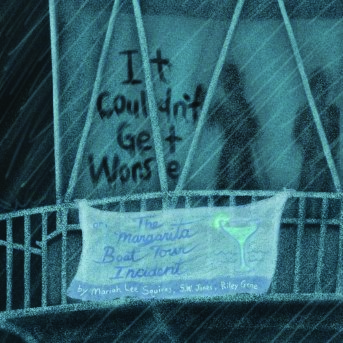 It
Couldn't
Get
Worse
The
Margarita
Boat Tour
Incident
by Mariah Lee Squires, S.W. Jones, Riley Gene